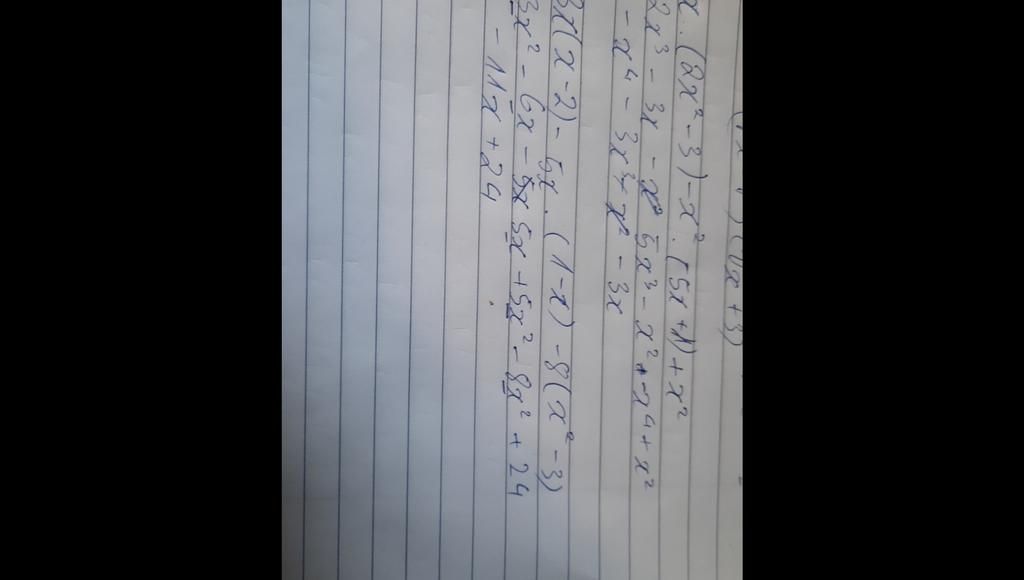 (4x+3)
x.(2x²-3)-x².(5x+1)+x²
2x³-3x-x² 5x³-x²+-x⁴+x²
-x⁴-3x³+x²-3x
3x(x-2)-5x.(1-x)-8(x²-3)
3x²-6x-5x 5x+5x²-8x²+24
-11x+24